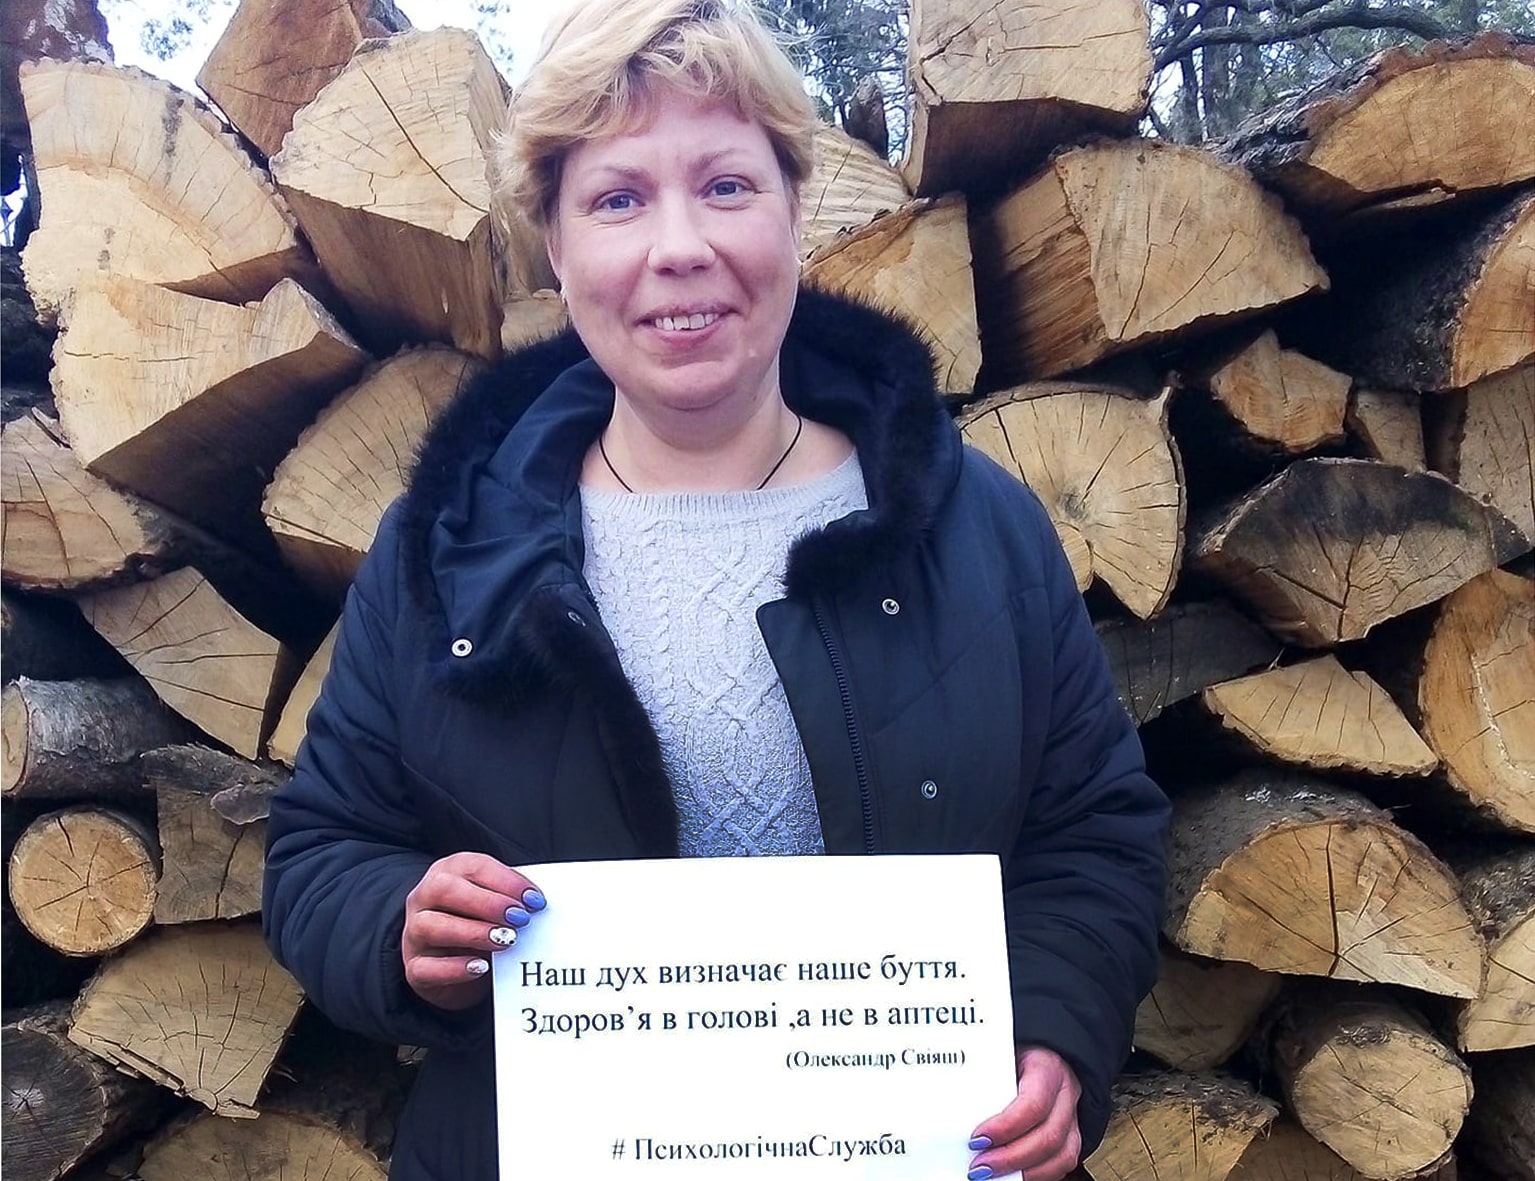 Наш дух визначає наше буття.
Здоров’я в голові ,а не в аптеці.
(Олександр Свіяш)
# ПсихологічнаСлужба